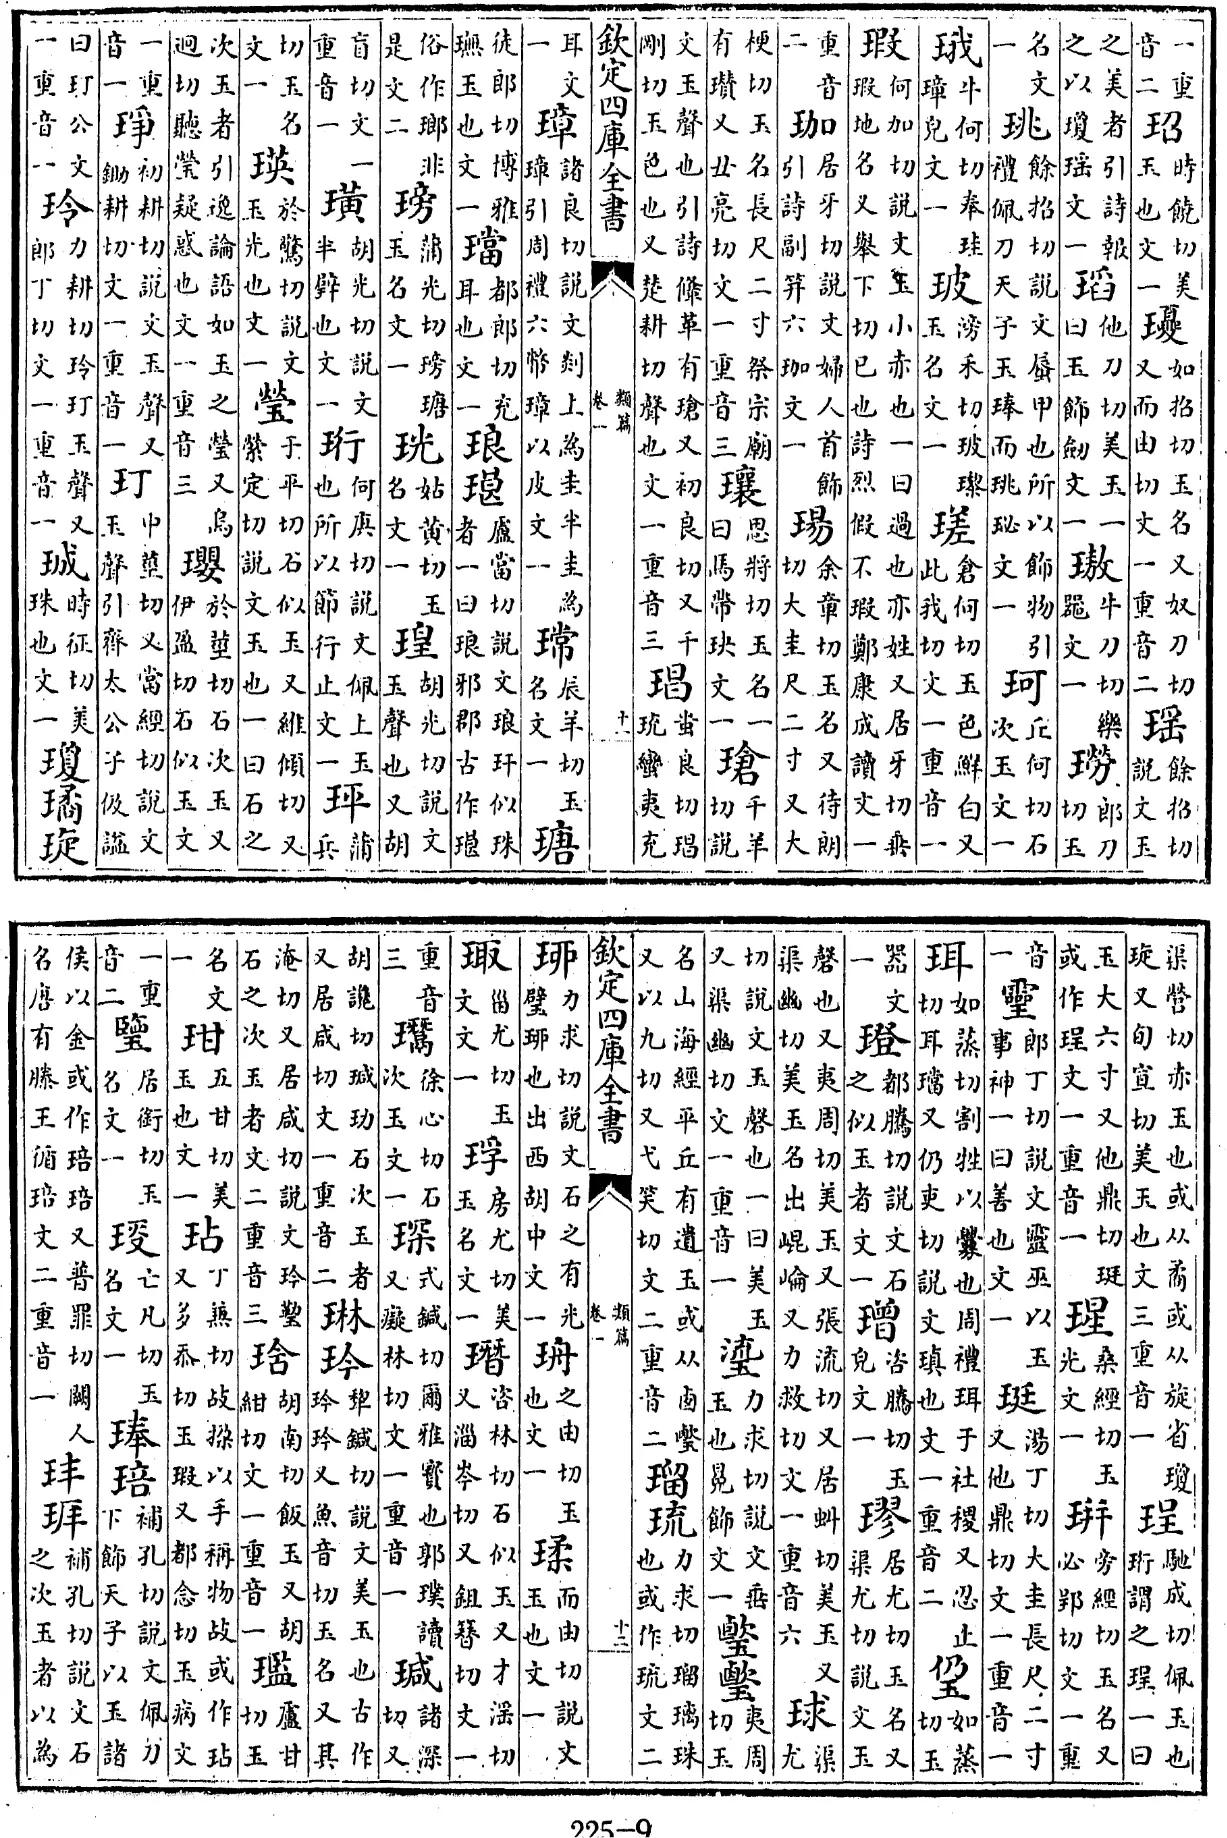 一重音二玿時饒切美玉也文一瓇如招切玉名又奴刀切又而由切文一重音二瑤餘招切說文玉
之美者引詩報之以瓊瑤文一瑫他刀切美玉一曰玉飾劒文一璈牛刀切樂噐文一𤩂郎刀切玉
名文一珧餘招切說文蜃甲也所以飾物引禮佩刀天子玉琫而珧珌文一珂丘何切石次玉文一
珴牛何切奉珪璋皃文一玻滂禾切玻瓈玉名文一瑳倉何切玉色鮮白又此我切文一重音一
瑕何加切說文玉小赤也一曰過也亦姓又居牙切垂瑕地名又舉下切巳也詩烈假不瑕鄭康成讀文一
重音二珈居牙切說文婦人首飾引詩副笄六珈文一瑒余章切玉名又待朗切大圭尺二寸又大
梗切玉名長尺二寸祭宗廟有瓚又丑亮切文一重音三瓖思將切玉名一曰馬帶玦文一瑲千羊切說
文玉聲也引詩鞗革有瑲又初良切又千剛切玉色也又楚耕切聲也文一重音三琩蚩良切琩琉蠻夷充
欽定四庫全書 類篇卷一 十一
耳文一璋諸良切說文剡上為圭半圭為璋引周禮六幣璋以皮文一瑺辰羊切玉名文一瑭
徒郎切博雅璑玉也文一璫都郎切充耳也文一琅𤧴盧當切說文琅玕似珠者一曰琅邪郡古作𤧴
俗作瑯非是文二㻍蒲光切㻍瑭玉名文一珖姑黃切玉名文一瑝胡光切說文玉聲也又胡
盲切文一重音一璜胡光切說文半辟也文一珩何庚切說文佩上玉也所以節行止文一玶蒲兵
切玉名文一瑛於驚切說文玉光也文一瑩于平切石似玉又維傾切又縈定切說文玉也一曰石之
次玉者引逸論語如玉之瑩又烏迥切聽瑩疑惑也文一重音三瓔於莖切石次玉又伊盈切石似玉文
一重音一琤初耕切說文玉聲又鋤耕切文一重音一玎中莖切又當經切說文玉聲引齊太公子伋諡
曰玎公文一重音一玲力耕切玲玎玉聲又郎丁切文一重音一珹時征切美珠也文一瓊璚琁
渠營切赤玉也或从矞或从旋省瓊琁又旬宣切美玉也文三重音一珵馳成切佩玉也珩謂之珵一曰
玉大六寸又他鼎切珽或作珵文一重音一瑆桑經切玉光文一㻂旁經切玉名又必郢切文一重
音一靈郎丁切說文靈巫以玉事神一曰善也文一珽湯丁切大圭長尺二寸又他鼎切文一重音一
珥如蒸切割牲以釁也周禮珥于社稷又忍止切耳璫又仍吏切說文瑱也文一重音二㺱如蒸切玉
噐文一璒都騰切說文石之似玉者文一璔咨騰切玉皃文一璆居尤切玉名又渠尤切說文玉
磬也又夷周切美玉又張流切又居蚪切美玉又渠幽切美玉名出崐崘又力救切文一重音六球渠尤
切說文玉磬也一曰美玉又渠幽切文一重音一瑬力求切說文垂玉也冕飾文一夷周切玉
名山海經平丘有遺玉或从卣又以九切又弋笑切文二重音二瑠琉力求切瑠璃珠也或作琉文二
欽定四庫全書 類篇卷一 十二
珋力求切說文石之有光璧珋也出西胡中文一珘之由切玉也文一瑈而由切說文玉也文一
㻓甾尤切玉文文一琈房尤切美玉名文一㻸咨林切石似玉又才淫切又淄岑切又鉏簪切文一
重音三徐心切石次玉文一琛式鍼切爾雅寶也郭璞讀又癡林切文一重音一瑊諸深切又
胡讒切瑊玏石次玉者又居咸切文一重音二琳玪犂鍼切說文美玉也古作玪玪又魚音切玉名又其
淹切又居咸切說文玪塾石之次玉者文二重音三琀胡南切飯玉又胡紺切文一重音一㻴盧甘切玉
名文一玵五甘切美玉也文一玷丁兼切㪉採以手稱物㪉或作玷又多忝切玉瑕又都念切玉病文
一重音二居銜切玉名文一亡凡切玉名文一琫琣補孔切說文佩刀下飾天子以玉諸
侯以金或作琣琣又普罪切闕人名唐有滕王循琣文二重音一玤補孔切說文石之次玉者以為
225—9